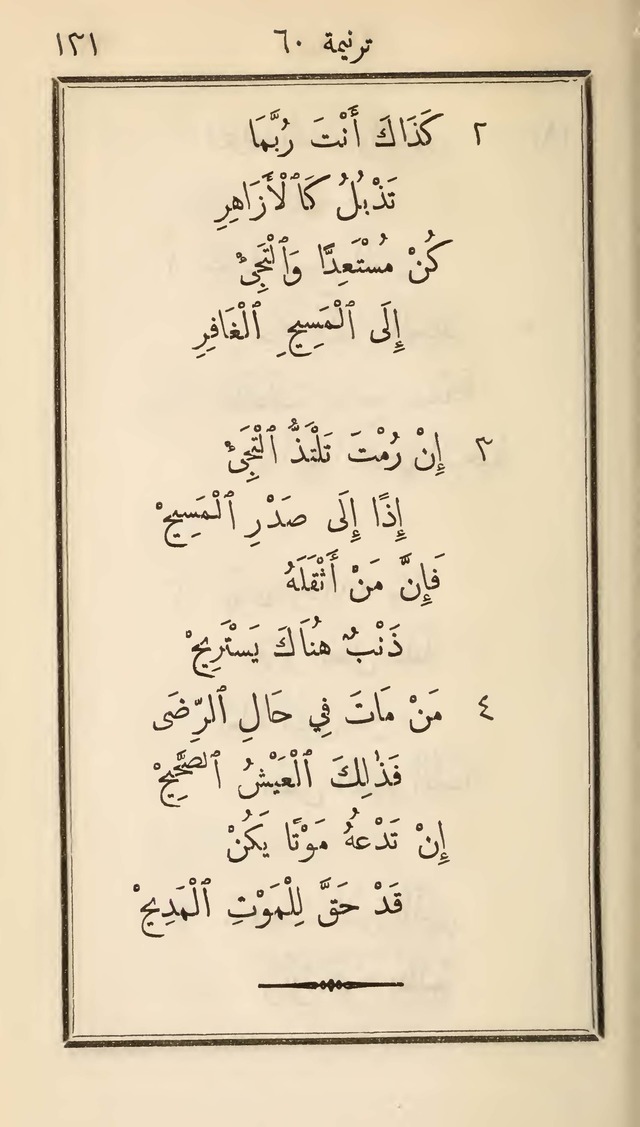 ترنيمة ٦٠ ١٣١
٢ كَذَاكَ أَنْتَ رُبَّمَا
تَذْبُلُ كَٱلْأَزَاهِرِ
كُنْ مُسْتَعِدًّا وَٱلْتَجِئْ
إِلَى ٱلْمَسِيحِ ٱلْغَافِرِ
٣ إِنْ رُمْتَ تَلْتَذُّ ٱلْتَجِئْ
إِذًا إِلَى صَدْرِ ٱلْمَسِيحْ
فَإِنَّ مَنْ أَثْقَلَهُ
ذَنْبٌ هُنَاكَ يَسْتَرِيحْ
٤ مَنْ مَاتَ فِي حَالِ ٱلرِّضَى
فَذٰلِكَ ٱلْعَيْشُ ٱلصَّحِيحْ
إِنْ تَدْعُهُ مَوْتًا يَكُنْ
قَدْ حَقَّ لِلْمَوْتِ ٱلْمَدِيحْ